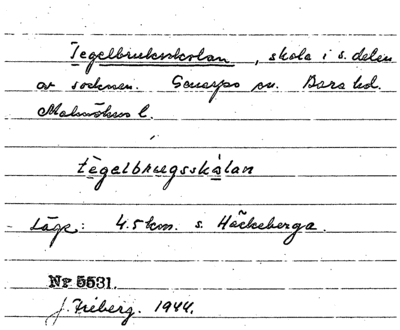 Tegelbruksskolan, skola i s. delen
av socknen. Genarps sn. Bara hd.
Malmöhus l.
tègelbruegsskålan
Läge: 4.5 km. s. Häckeberga.
Nr 5531.
J. Frieberg. 1944.